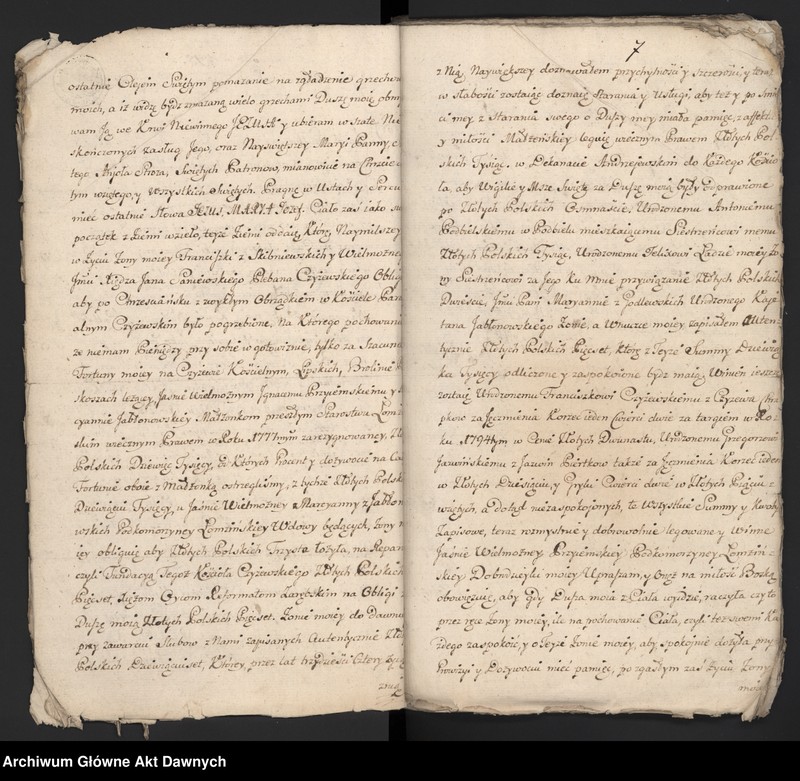 ostatnie Olejem Swiętym pomazanie na zgładzenie grzechow
moich, a iż widzę bydz zmazaną wielo grzechami Duszę moię obmy
wam Ją we Krwi Niewinnego JEZUSA y ubieram w szatę Nie
skończonych zasług Jego, oraz Nayswiętszey Maryi Panny, S
tego Anjoła Stroza, Swiętych Patronow, mianowicie na Chrzcie
tym wziętego, y Wszystkich Swiętych. Pragnę w Ustach y Sercu
mieć ostatnie słowa JEZUS, MARYA Jozef. Ciało zaś iako swoy
początek z Ziemi wzieło, toż Ziemi oddaię, Ktorę Naymilszey
w Życiu Żony moiey Franciszki z Skibniewskich y Wielmożne
Jmci Xiędza Jana Saniewskiego Plebana Czyżewskiego Obliguię
aby po Chrzesciańsku z zwykłym Obrządkiem w Kosciele Para
alnym Czyżewskim było pogrzebione, na Ktorego pochowanie
że nie mam Pieniędzy przy sobie w gotowiznie, tylko za Szacunek
Fortuny moiey na Czyżewie Kościelnym, Lipskich, Brolinie
skoszach leżącey Jaśnie Wielmożnym Ignacemu Przyiemskiemu y
cyannie Jabłonowskiey Małżonkom przeszłym Starostwu Łom
skim wiecznym Prawem w Roku 1777mym zarezygnowaney, Zło
Polskich Dziewięć Tysięcy, od Ktorych Procent y dożywocie na Ca
Fortunie oboie z Małżonką ostrzegliśmy, z tychże Złotych Polski
Dziewięciu Tysięcy, u Jaśnie Wielmożney Marcyanny z Jabłon
wskich Podkomorzyney Łomżinskiey Wdowy będących, Żony m
iey obliguię aby Złotych Polskich Trzysta łożyła, na Repar
czyli Fundacyą Tegoż Kościoła Czyżewskiego Złotych Polskich
Pięćset, Xiężom Oycom Reformatom Węgrzkim na Obligi
Duszę moią Złotych Polskich Pięcset. Żonie moiey do dawn
przy zawarciu Slubow z Nami zapisanych Autentycznie Zł
Polskich Dziewięciuset, Ktorey, przez lat trzydzieści cztery żyią
z nią
7
z Nią Naywiększey doznawałem przychylności y szczerości, y teraz
w słabości zostaiąc doznaię Starania y Usługi, aby też y po Smier
ci mey z Starania swego o Duszy mey miała pamięc, z affektu
y miłości Małżeńskiey leguię wiecznym Prawem Złotych Pol
skich Tysiąc. w Dekanacie Andrzejewskim do Każdego Koscio
ła, aby Wigilie y Msze Swięte za Duszę moią były odprawione
po Złotych Polskich Osmnaście, Urodzonemu Antoniemu
Podbielskiemu w Podbielu mieszkaiącemu Siestrzeńcowi memu
Złotych Polskich Tysiąc, Urodzonemu Felixowi Ładzie moiey Żo
ny Siestrzencowi za Jego ku Mnie przywiązanie Złotych Polskich
Dwieście, Jmci Pani Maryannie z Godlewskich Urodzonego Kapi
tana Jabłonowskiego Żonie, a Wnuczce moiey, zapisałem Auten
tycznie Złotych Polskich Pięcset, Ktorę z teyże Summy Dziewię
ka Tysięcy odliczone y zaspokoione bydz maią, Winien ieszcze
zostaię Urodzonemu Franciszkowi Czyżewskiemu z Czyżewa Chra
pkow za Jęczmienia Korzec ieden Cwierci dwie za targiem w Ro
ku 1794tym w Cenie Złotych Dwunastu, Urodzonemu Grzegorzowi
Jaźwińskiemu z Jaźwin Piertkow także za Jęczmienia Korzec ieden
w Złotych Dziesięciu, y Gryki Cwierci dwie w Złotych Pięciu z
wziętych, a dotąd niezaspokojonych, te Wszystkie Summy y Kwoty
Zapisowe, teraz rozmyslnie y dobrowolnie legowane y Winne
Jaśnie Wielmożney Przyiemskiey Podkomorzyney Łomżin
skiey Dobrodzieyki moiey Upraszam, y oraz na miłość Boską
obowięzuię, aby gdy Dusza moia z Ciała wyidzie, raczyła czyto
przez ręce Żony moiey, ile na pochowanie Ciała, czyli też swemi Ka
żdego zaspokoić, y o teyże Żonie moiey, aby spokojnie dożyła przy
Prowizyi y Dożywociu mieć pamięc, po zgasłym zaś życiu Żony
moiey
Archiwum Główne Akt Dawnych